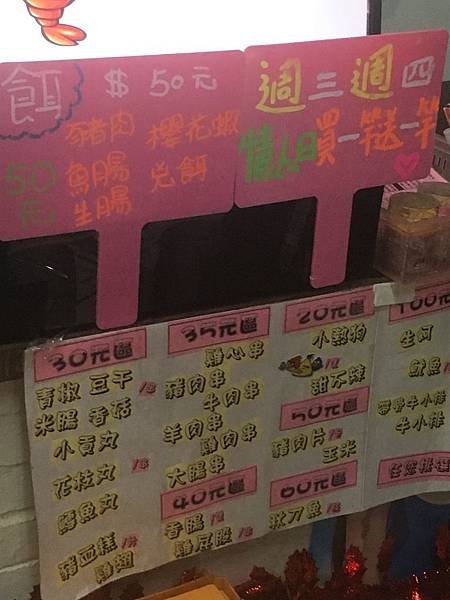 餌 $ 50元
50元
豬肉 櫻花蝦
魚腸 羌餌
生腸
週三週四
情人日買一竿送一竿
30元區
青椒 豆干
米腸 香菇
小貢丸
花枝丸
鱈魚丸
豬血糕
雞翅
35元區
雞心串
豬肉串
牛肉串
羊肉串
雞肉串
大腸串
40元區
香腸
雞屁股
20元區
小熱狗
甜不辣
50元區
豬肉片
玉米
60元區
秋刀魚
100元
生蚵
魷魚
帶骨牛小排
牛小排
任您挑選